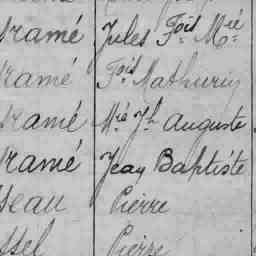 ramé Jules Fois Mré
ramé Fois Mathurin
ramé Mré Jh Auguste
ramé Jean Baptiste
seau Pierre
ssel Pierre